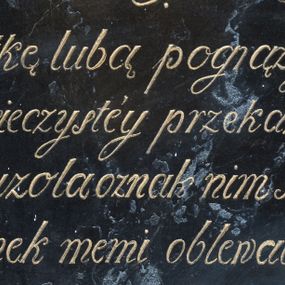 kę lubą pogrąż
ieczystéy przeka
uzola oznak nim
wek memi oblewa